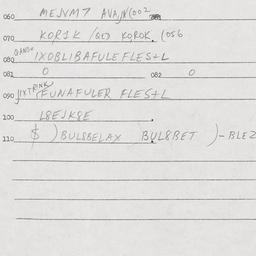 060 MEJVM7 AVAJX(002
070 KOR1K /QED KOROK. (056
080 QANDK IXOBLIBAFULEFLES+L
081 0 082 0
090 JIXTRINK FUNAFULER FLES+L
100 L8EJK8E .
110 $ ) BULBBELAX BUL8BET )-BLEZ